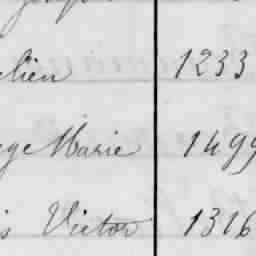 elien 1233
ege Marie 1499
is Victor 1316